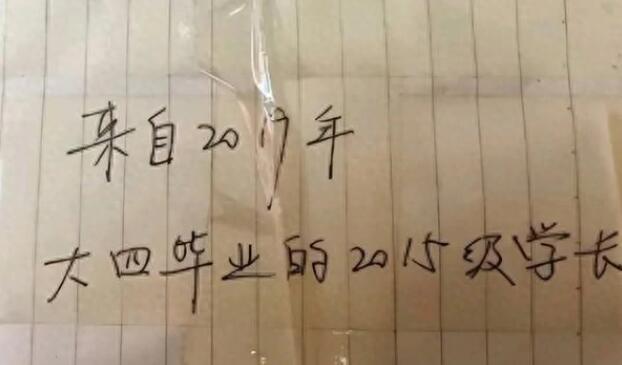 来自2019年
大四毕业的2015级学长